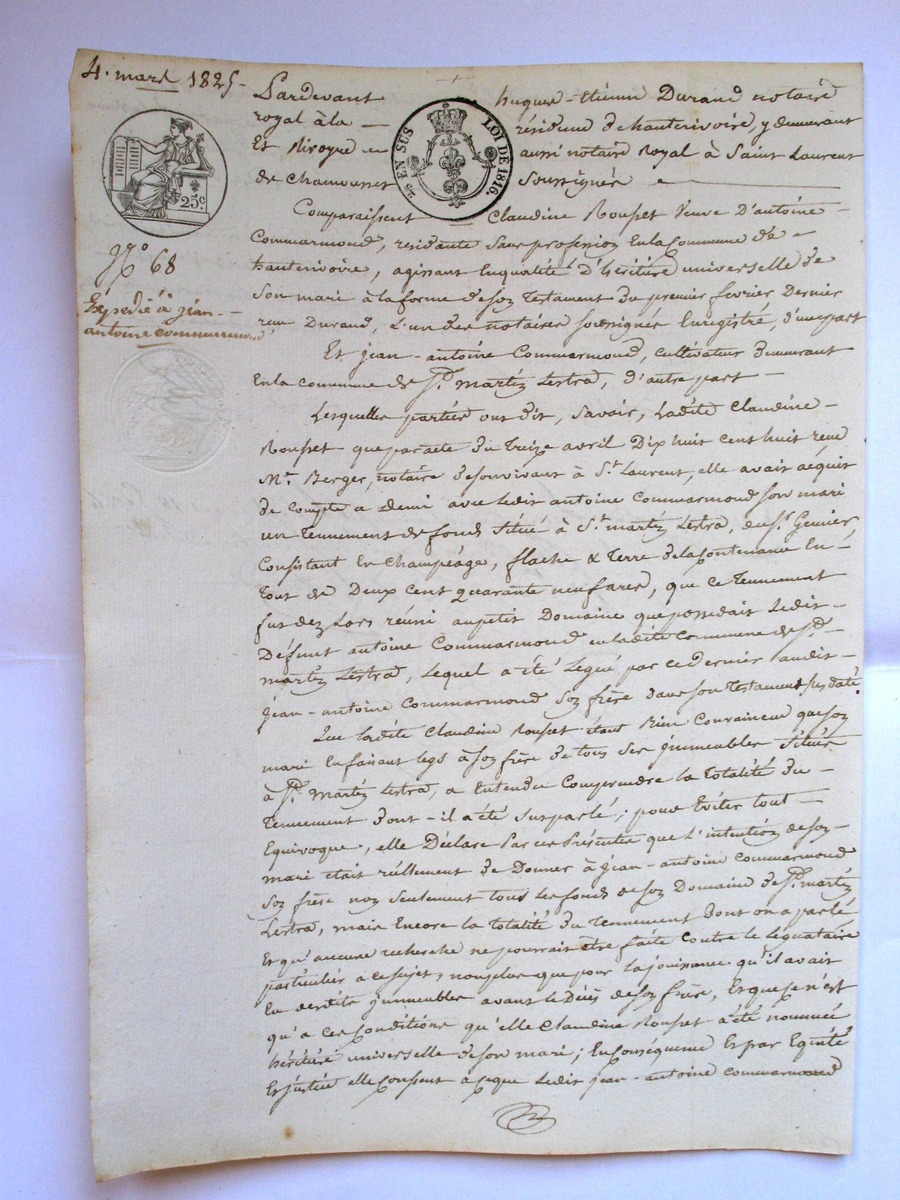 4. mars 1825-
Pardevant hugues-étienne Durand notaire
royal à la résidence de hauterivoire, y demeurant
Et Riroyne aussi notaire Royal à Saint Laurent
de Chamousset Soussignés
25 EN SUS LOI DE 1816.
25c.
N° 68
Expédié à jean-
antoine Commarmond
Comparaissent Claudine Rousset Veuve D'antoine
Commarmond, residante Sans profession En la Commune d'a
hauterivoire, agissant En qualité d'héritière universelle de
Son mari à la forme de son Testament du premier février Dernier
reçu Durand, L'un des notaires soussignés Enregistré, d'une part
Et jean-antoine Commarmond, cultivateur demeurant
En la commune de St. martin Lestra, d'autre part
Lesquelles parties ont dit, Savoir, Ladite Claudine
Rousset que par acte du treize avril Dix huit cent huit reçu
Mr. Berger, notaire de son vivant à St. Laurent, elle avait acquit
de compte a demi avec Ledit antoine Commarmond son mari
un Tennement de fonds Situé à St. martin Lestra, du Sr. Genier
Consistant En Champéage, flache & Terre de la Contenance En
tout de Deux cent quarante neuf ares, que ce Tennement
fut dez Lors réuni au petit Domaine que possedait Ledit
Défunt antoine Commarmond en ladite Commune de St.
martin Lestra, Lequel a été Legué par ce dernier audit
jean-antoine Commarmond Son frère dans son Testament susdaté
Que ladite Claudine Rousset étant Bien Convaincue que son
mari En faisant legs à son frère de tous Ses jmmeubles Situés
à St. Martin Lestra, a Entendu Comprendre la Totalité du
Tennement dont-il a été Sus parlé; pour Eviter tout
Equivoque, elle Déclare Par ces Présentes que L'intention de son
mari était réellement de Donner à jean-antoine commarmond
Son frère non Seulement tous les fonds de son Domaine de St. martin
Lestra, mais Encore la Totalité du Tennement dont on a parlé
Et qu'aucune recherche ne pourrait être faite contre le Léguataire
particulier à ce sujet, non plus que pour la jouissance qu'il avait
En desdits jmmeubles avant le Décès de son frère, Et que ce n'est
qu'a ces Conditions qu'elle Claudine Rousset a été nommée
héritière universelle de son mari; En Conséquence Et par Equité
Et justice elle Consent à ce que Ledit jean-antoine commarmond